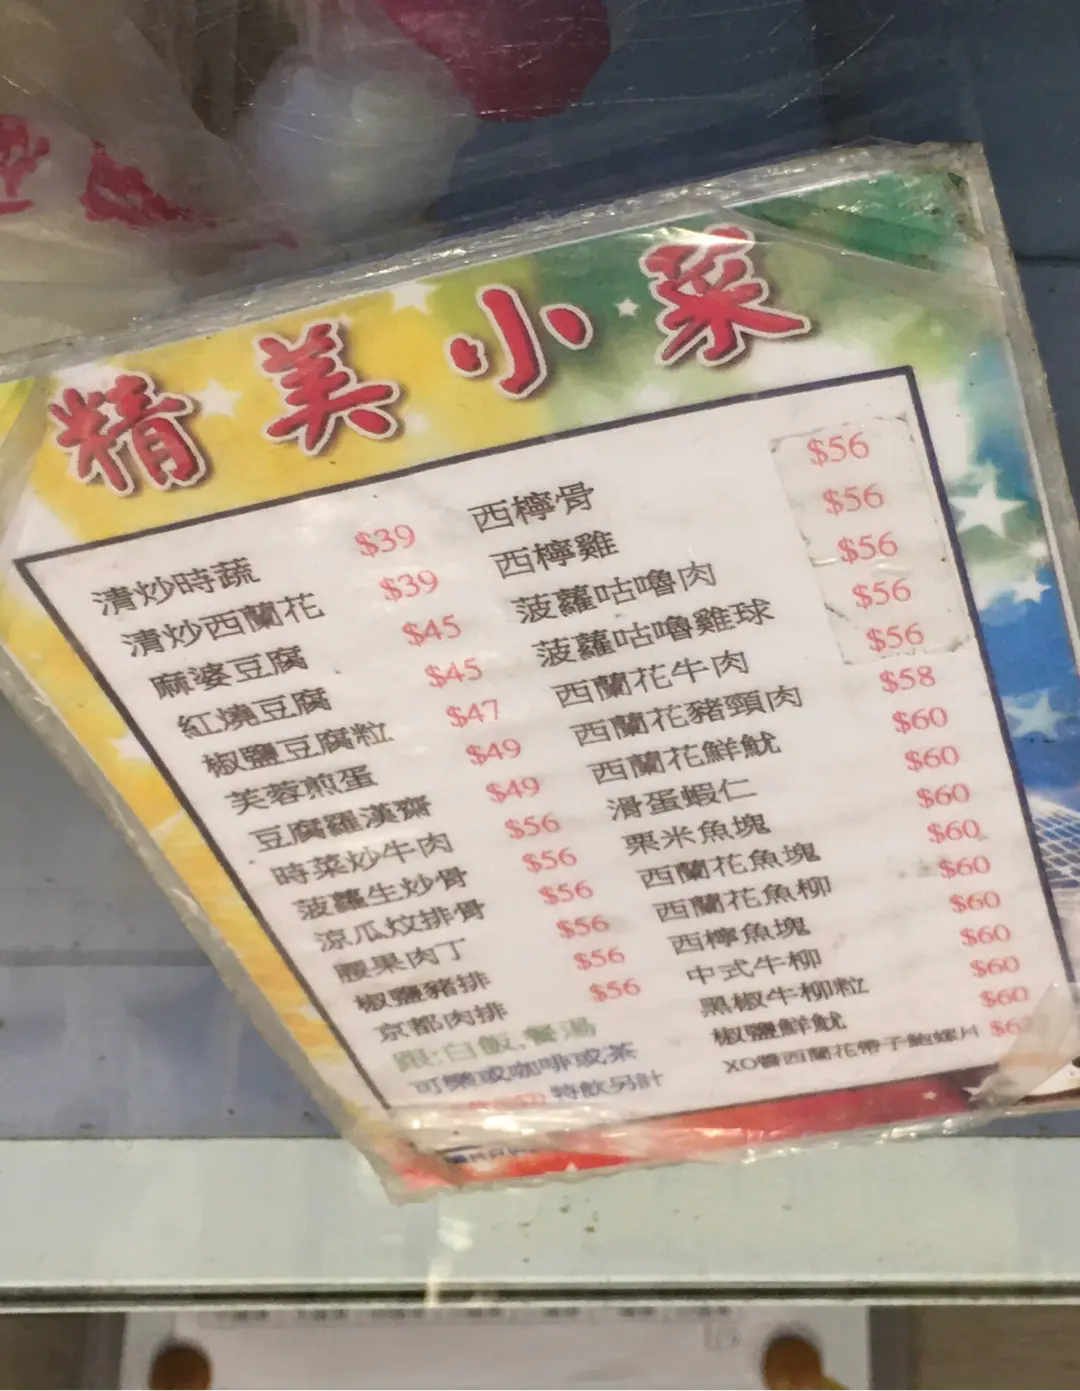 精美小菜
清炒時蔬 $39
清炒西蘭花 $39
麻婆豆腐 $45
紅燒豆腐 $45
椒鹽豆腐粒 $47
芙蓉煎蛋 $49
豆腐羅漢齋 $49
時菜炒牛肉 $56
菠蘿生炒骨 $56
涼瓜炆排骨 $56
腰果肉丁 $56
椒鹽豬排 $56
京都肉排 $56
跟:白飯,餐湯
可樂或咖啡或茶
特飲另計
西檸骨 $56
西檸雞 $56
菠蘿咕嚕肉 $56
菠蘿咕嚕雞球 $56
西蘭花牛肉 $56
西蘭花豬頸肉 $58
西蘭花鮮魷 $60
滑蛋蝦仁 $60
粟米魚塊 $60
西蘭花魚塊 $60
西蘭花魚柳 $60
西檸魚塊 $60
中式牛柳 $60
黑椒牛柳粒 $60
椒鹽鮮魷 $60
XO醬西蘭花帶子鮑螺片